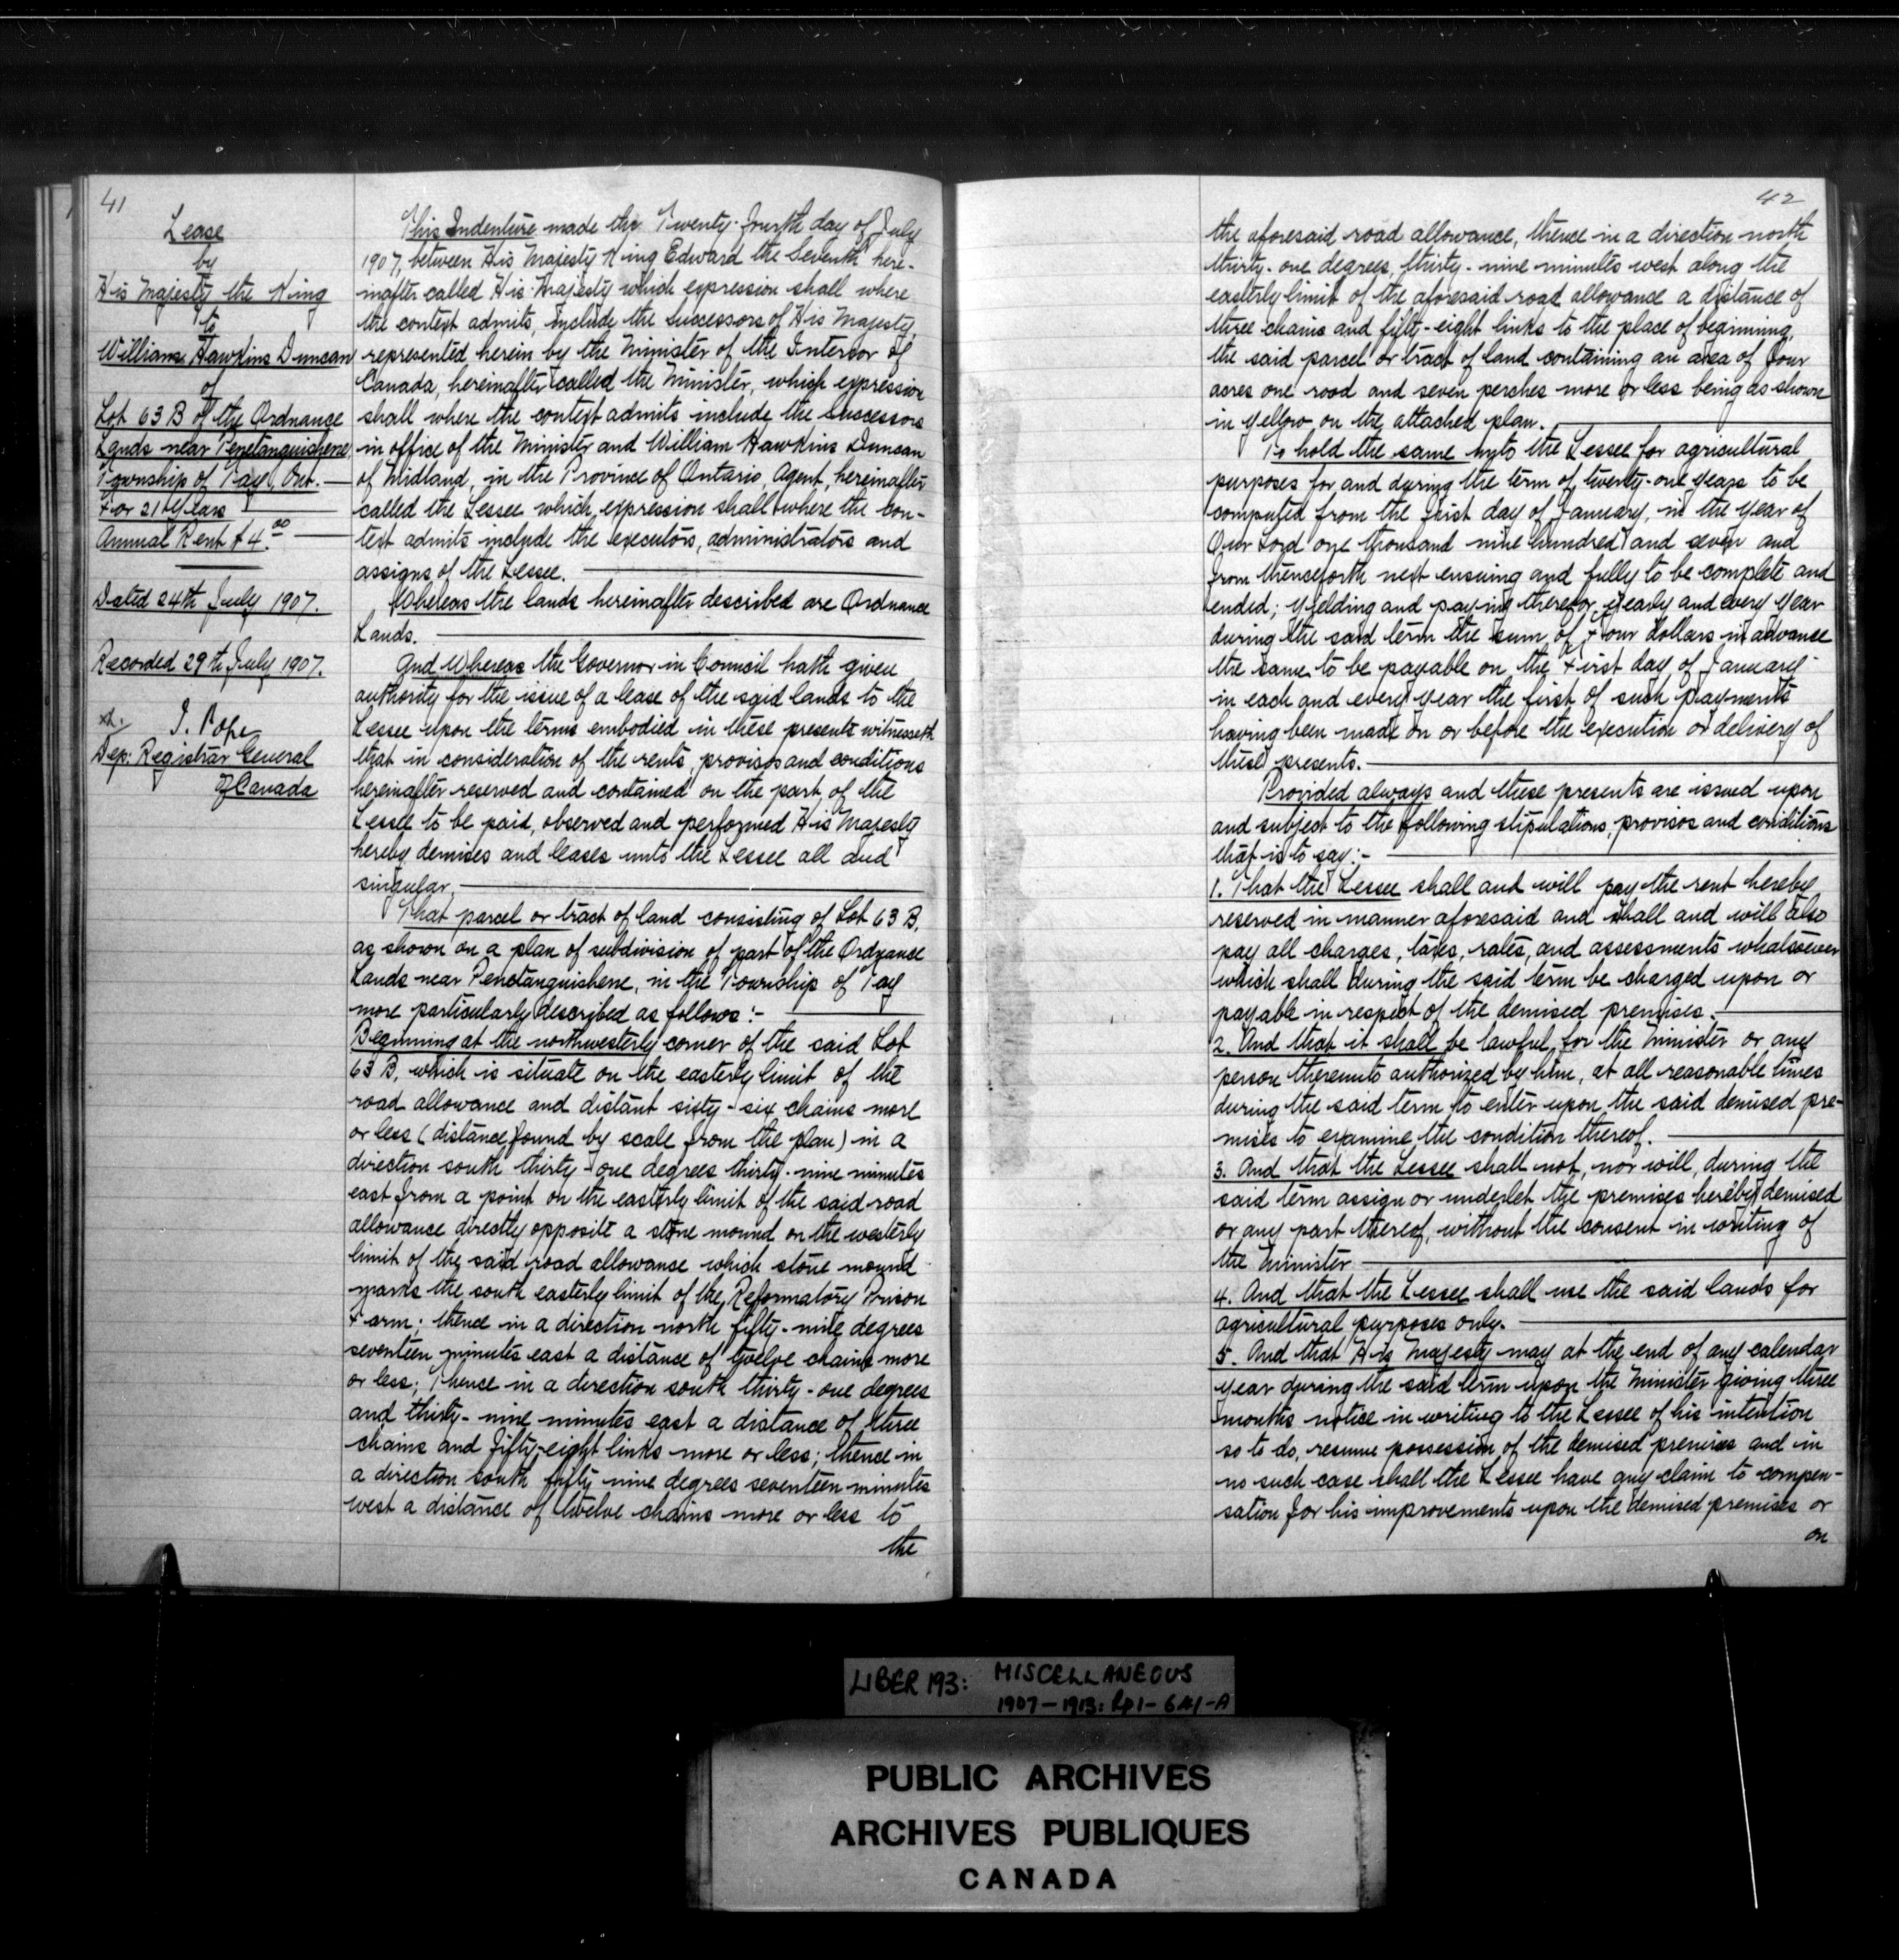 41
Lease
by
His Majesty the King
to
William Hawkins Duncan
of
Lot 63 B of the Ordnance
Lands near Penetanguishene
Township of Tay, Ont.
For 21 Years
Annual Rent $4.00
Dated 24th July 1907.
Recorded 29th July 1907.
J. Pope
Dep: Registrar General
of Canada
This Indenture made the Twenty-fourth day of July
1907, between His Majesty King Edward the Seventh here-
inafter called His Majesty which expression shall where
the context admits, include the successors of His Majesty,
represented herein by the Minister of the Interior of
Canada, hereinafter called the Minister, which expression
shall where the context admits include the Successors
in office of the Minister and William Hawkins Duncan
of Midland, in the Province of Ontario, Agent, hereinafter
called the Lessee which expression shall where the con-
text admits include the executors, administrators and
assigns of the Lessee.
Whereas the lands hereinafter described are Ordnance
Lands.
And Whereas the Governor in Council hath given
authority for the issue of a lease of the said lands to the
Lessee upon the terms embodied in these presents witnesseth
that in consideration of the rents, provisos and conditions
hereinafter reserved and contained on the part of the
Lessee to be paid, observed and performed His Majesty
hereby demises and leases unto the Lessee all and
singular,
That parcel or tract of land consisting of Lot 63 B,
as shown on a plan of subdivision of part of the Ordnance
Lands near Penetanguishene, in the Township of Tay
more particularly described as follows:-
Beginning at the northwesterly corner of the said Lot
63 B, which is situate on the easterly limit of the
road allowance and distant sixty-six chains more
or less (distance found by scale from the plan) in a
direction south thirty-one degrees thirty-nine minutes
east from a point on the easterly limit of the said road
allowance directly opposite a stone mound on the westerly
limit of the said road allowance which stone mound
marks the south easterly limit of the Reformatory Prison
Farm; thence in a direction north fifty-nine degrees
seventeen minutes east a distance of twelve chains more
or less; Thence in a direction south thirty-one degrees
and thirty-nine minutes east a distance of three
chains and fifty-eight links more or less; thence in
a direction south fifty nine degrees seventeen minutes
west a distance of twelve chains more or less to
the
42
the aforesaid road allowance, thence in a direction north
thirty-one degrees, thirty-nine minutes west along the
easterly limit of the aforesaid road allowance a distance of
three chains and fifty-eight links to the place of beginning,
the said parcel or tract of land containing an area of four
acres one rood and seven perches more or less being as shown
in yellow on the attached plan.
To hold the same unto the Lessee for agricultural
purposes for and during the term of twenty-one years to be
computed from the first day of January, in the year of
Our Lord one thousand nine hundred and seven and
from thenceforth next ensuing and fully to be complete and
ended; yielding and paying therefor yearly and every year
during the said term the sum of Four dollars in advance
the same to be payable on the First day of January
in each and every year the first of such payments
having been made on or before the execution or delivery of
these presents.
Provided always and these presents are issued upon
and subject to the following stipulations, provisos and conditions
that is to say:-
1. That the Lessee shall and will pay the rent hereby
reserved in manner aforesaid and shall and will also
pay all charges, taxes, rates, and assessments whatsoever
which shall during the said term be charged upon or
payable in respect of the demised premises.
2. And that it shall be lawful for the Minister or any
person thereunto authorized by him, at all reasonable times
during the said term to enter upon the said demised pre-
mises to examine the condition thereof.
3. And that the Lessee shall not, nor will, during the
said term assign or underlet the premises hereby demised
or any part thereof, without the consent in writing of
the Minister
4. And that the Lessee shall use the said lands for
agricultural purposes only.
5. And that His Majesty may at the end of any calendar
year during the said term upon the Minister giving three
months notice in writing to the Lessee of his intention
so to do, resume possession of the demised premises and in
no such case shall the Lessee have any claim to compen-
sation for his improvements upon the demised premises or
on
LIBER 193: MISCELLANEOUS
1907-1913: pp 1-641-A
PUBLIC ARCHIVES
ARCHIVES PUBLIQUES
CANADA